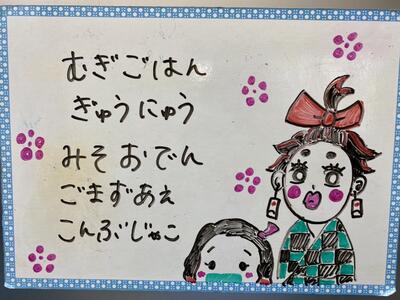 むぎごはん
ぎゅうにゅう
みそおでん
ごまずあえ
こんぶじゃこ